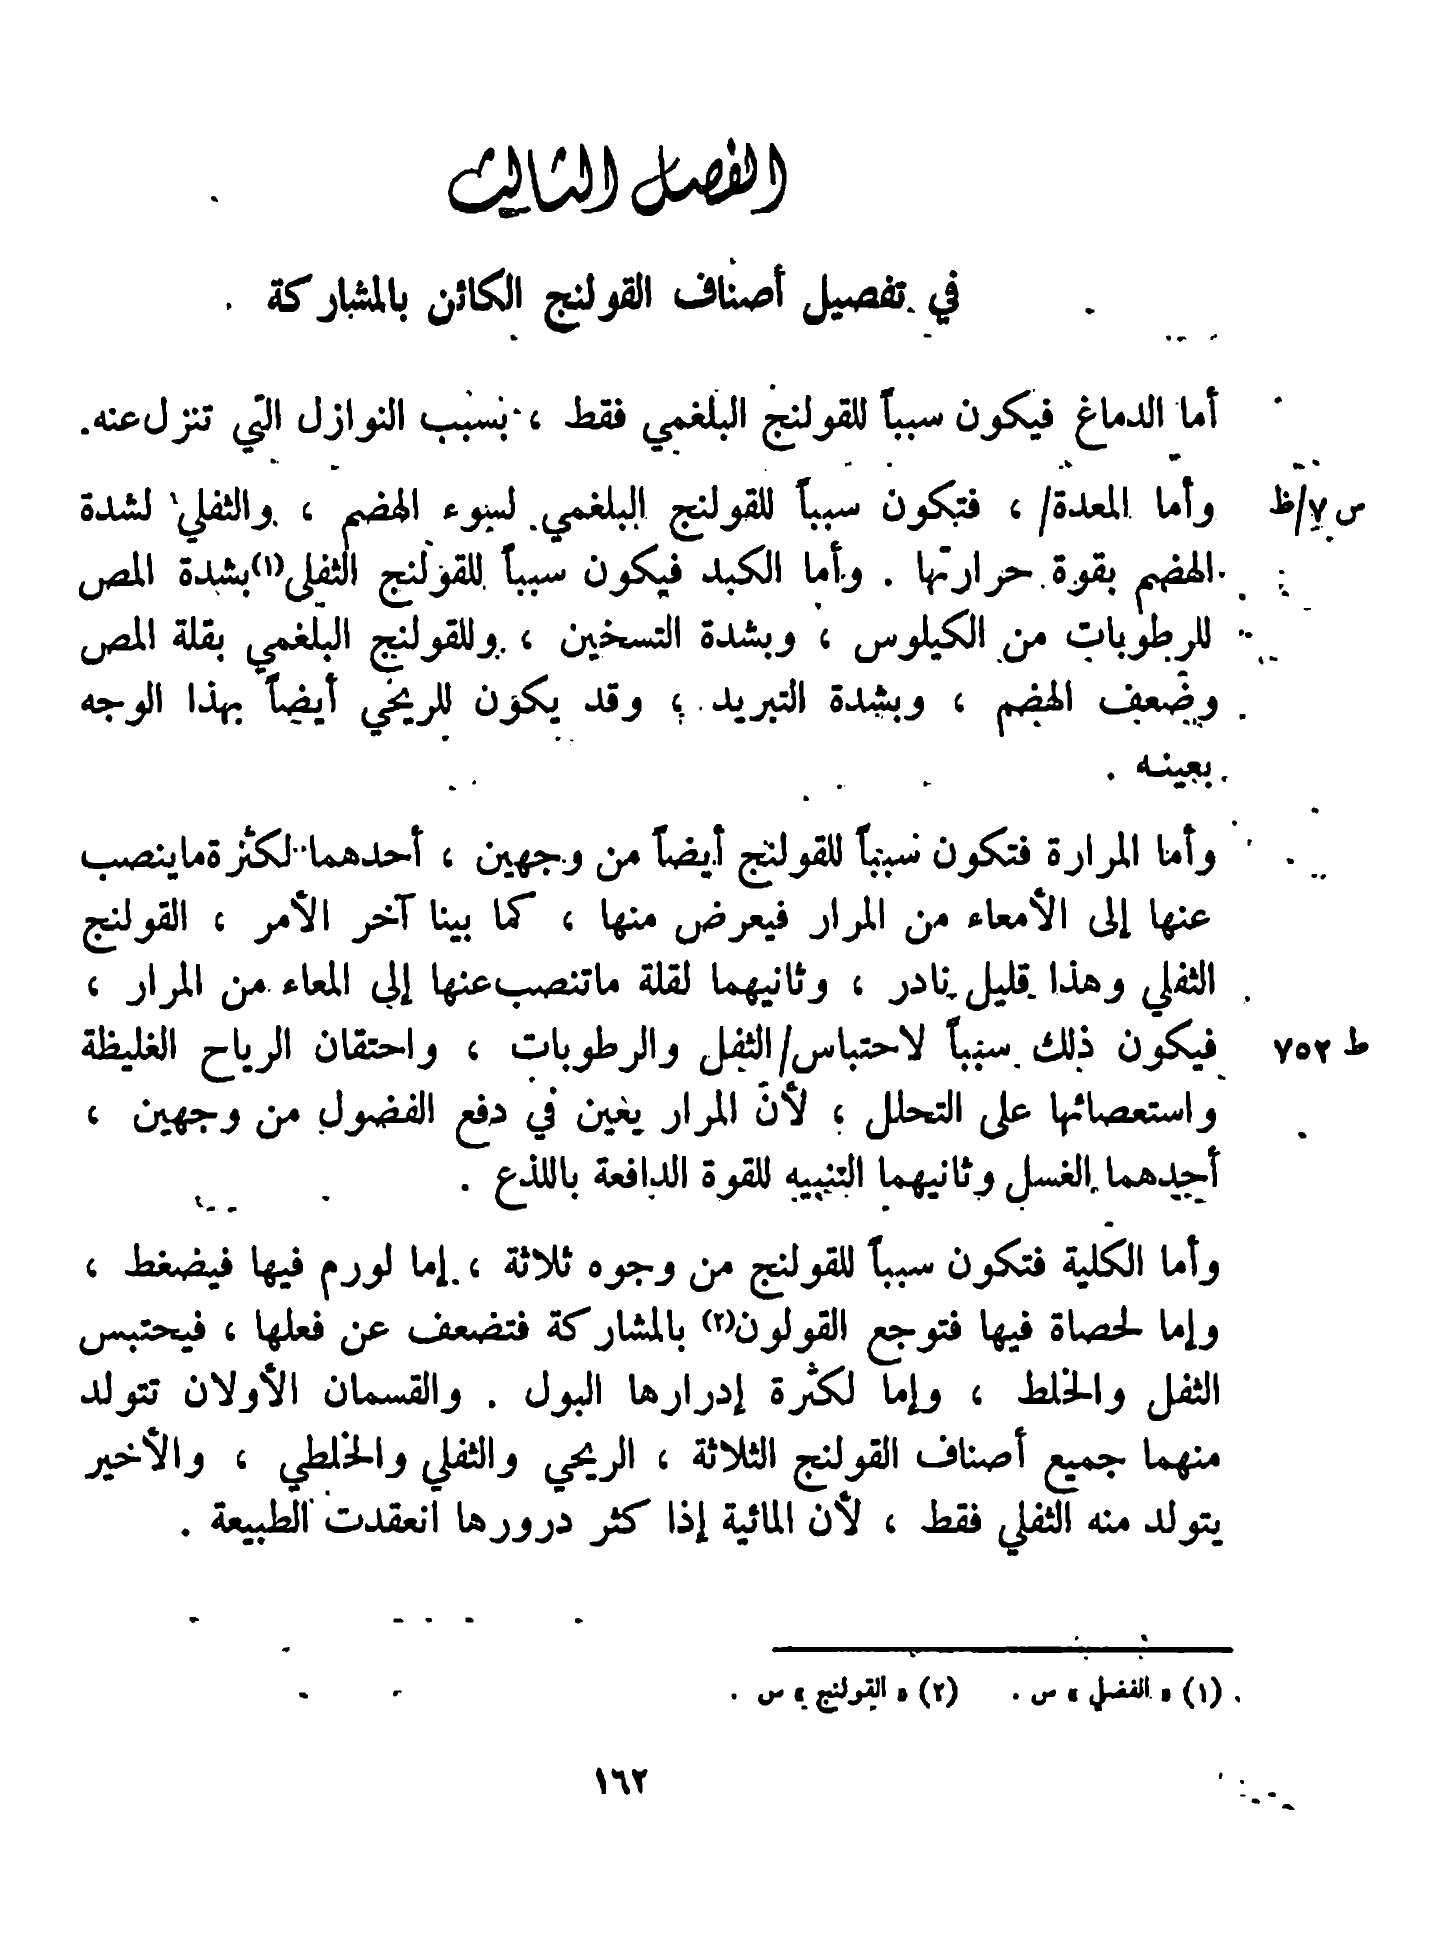 الفصل الثالث
في تفصيل أصناف القولنج الكائن بالمشاركة
أما الدماغ فيكون سبباً للقولنج البلغمي فقط ، بسبب النوازل التي تنزل عنه.
وأما المعدة/ ، فتكون سبباً للقولنج البلغمي لسوء الهضم ، والثفلي لشدة
س ٧/ظ
الهضم بقوة حرارتها . وأما الكبد فيكون سبباً للقولنج الثفلي(١) بشدة المص
للرطوبات من الكيلوس ، وبشدة التسخين ، وللقولنج البلغمي بقلة المص
وضعف الهضم ، وبشدة التبريد ؛ وقد يكون للريحي أيضاً بهذا الوجه
بعينه .
وأما المرارة فتكون سبباً للقولنج أيضاً من وجهين ، أحدهما لكثرة ماينصب
عنها إلى الأمعاء من المرار فيعرض منها ، كما بينا آخر الأمر ، القولنج
الثفلي وهذا قليل نادر ، وثانيهما لقلة ماتنصب عنها إلى المعاء من المرار ،
فيكون ذلك سبباً لاحتباس/ الثفل والرطوبات ، واحتقان الرياح الغليظة
ط ٧٥٢
واستعصائها على التحلل ؛ لأن المرار يعين في دفع الفضول من وجهين ،
أحدهما الغسل وثانيهما التنبيه للقوة الدافعة باللذع .
وأما الكلية فتكون سبباً للقولنج من وجوه ثلاثة ، إما لورم فيها فيضغط ،
وإما لحصاة فيها فتوجع القولون(٢) بالمشاركة فتضعف عن فعلها ، فيحتبس
الثفل والخلط ، وإما لكثرة إدرارها البول . والقسمان الأولان تتولد
منهما جميع أصناف القولنج الثلاثة ، الريحي والثفلي والخلطي ، والأخير
يتولد منه الثفلي فقط ، لأن المائية إذا كثر درورها انعقدت الطبيعة .
(١) « الفضل » س . (٢) « القولنج » س .
١٦٢